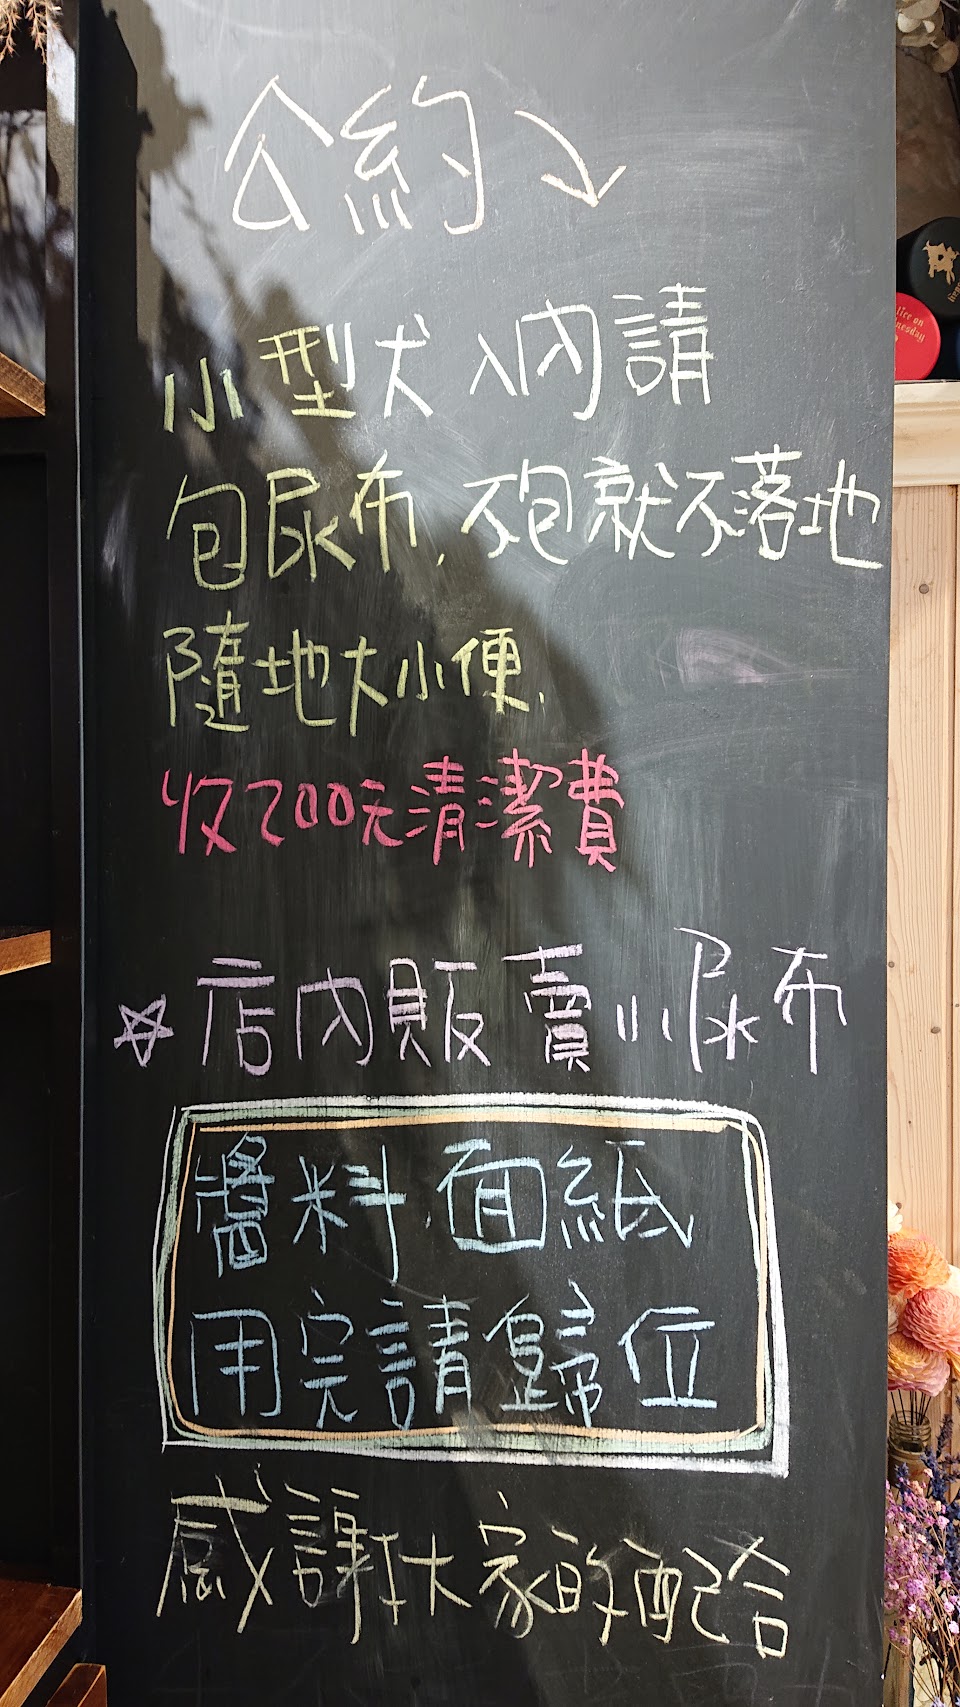 公約
小型犬入內請
包尿布,不包就不落地
隨地大小便,
收200元清潔費
☆店內販賣小尿布
醬料.面紙
用完請歸位
感謝大家的配合